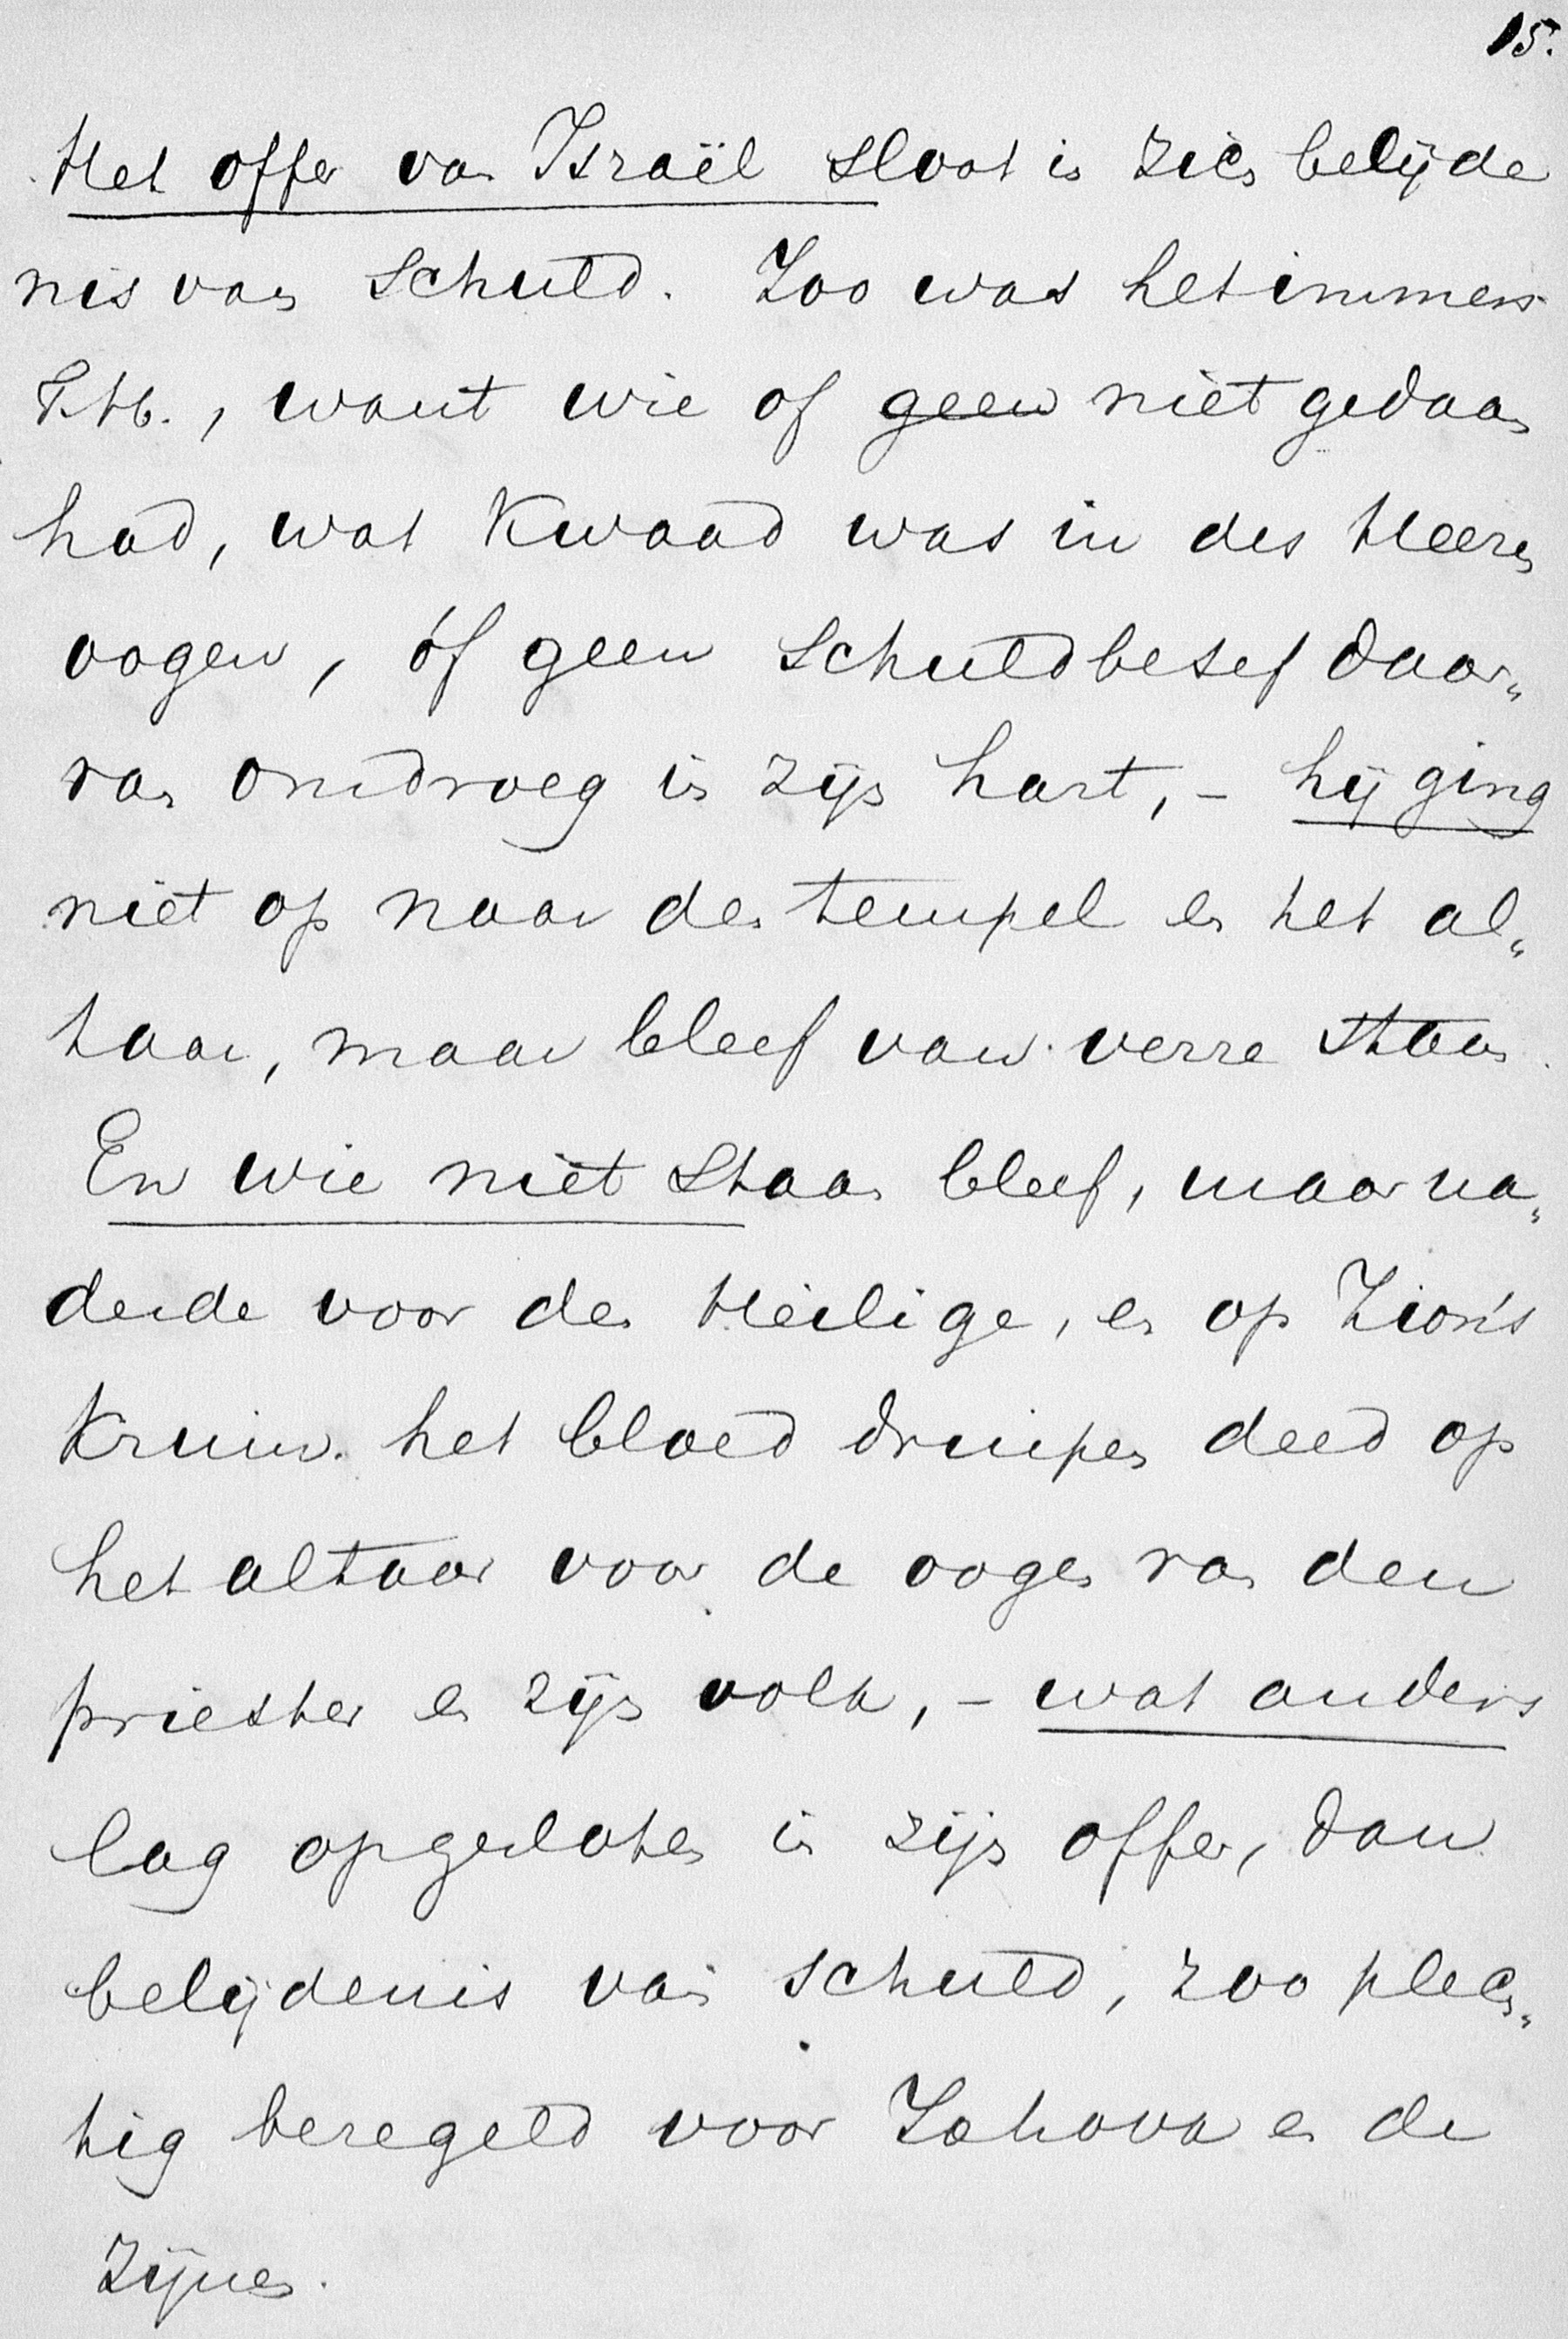 15.
Het offer van Israël sloot in zich belijde
nis van schuld. Zoo was het immers
T. H., want wie of geen niet gedaan
had, wat kwaad was in des Heeren
oogen, óf geen schuldbesef daar„
van omdroeg in zijn hart, – hij ging
niet op naar den tempel en het al„
taar, maar bleef van verre staan.
En wie niet staan bleef, maar na„
derde voor den Heilige, en op Zion's
kruin het bloed druipen deed op
het altaar voor de oogen van den
priester en zijn volk, – wat anders
lag opgesloten in zijn offer, dan
belijdenis van schuld, zoo plech„
tig bezegeld voor Jahova en de
Zijnen.